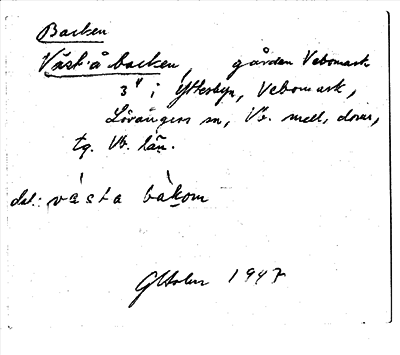 Backen
Väst-å backen, gården Vebomark
3" i Ytterbyn, Vebomark,
Lövångers sn, Vb. mell. domr,
tg. Vb. län.
dial: västa båkom
GHolm 1947